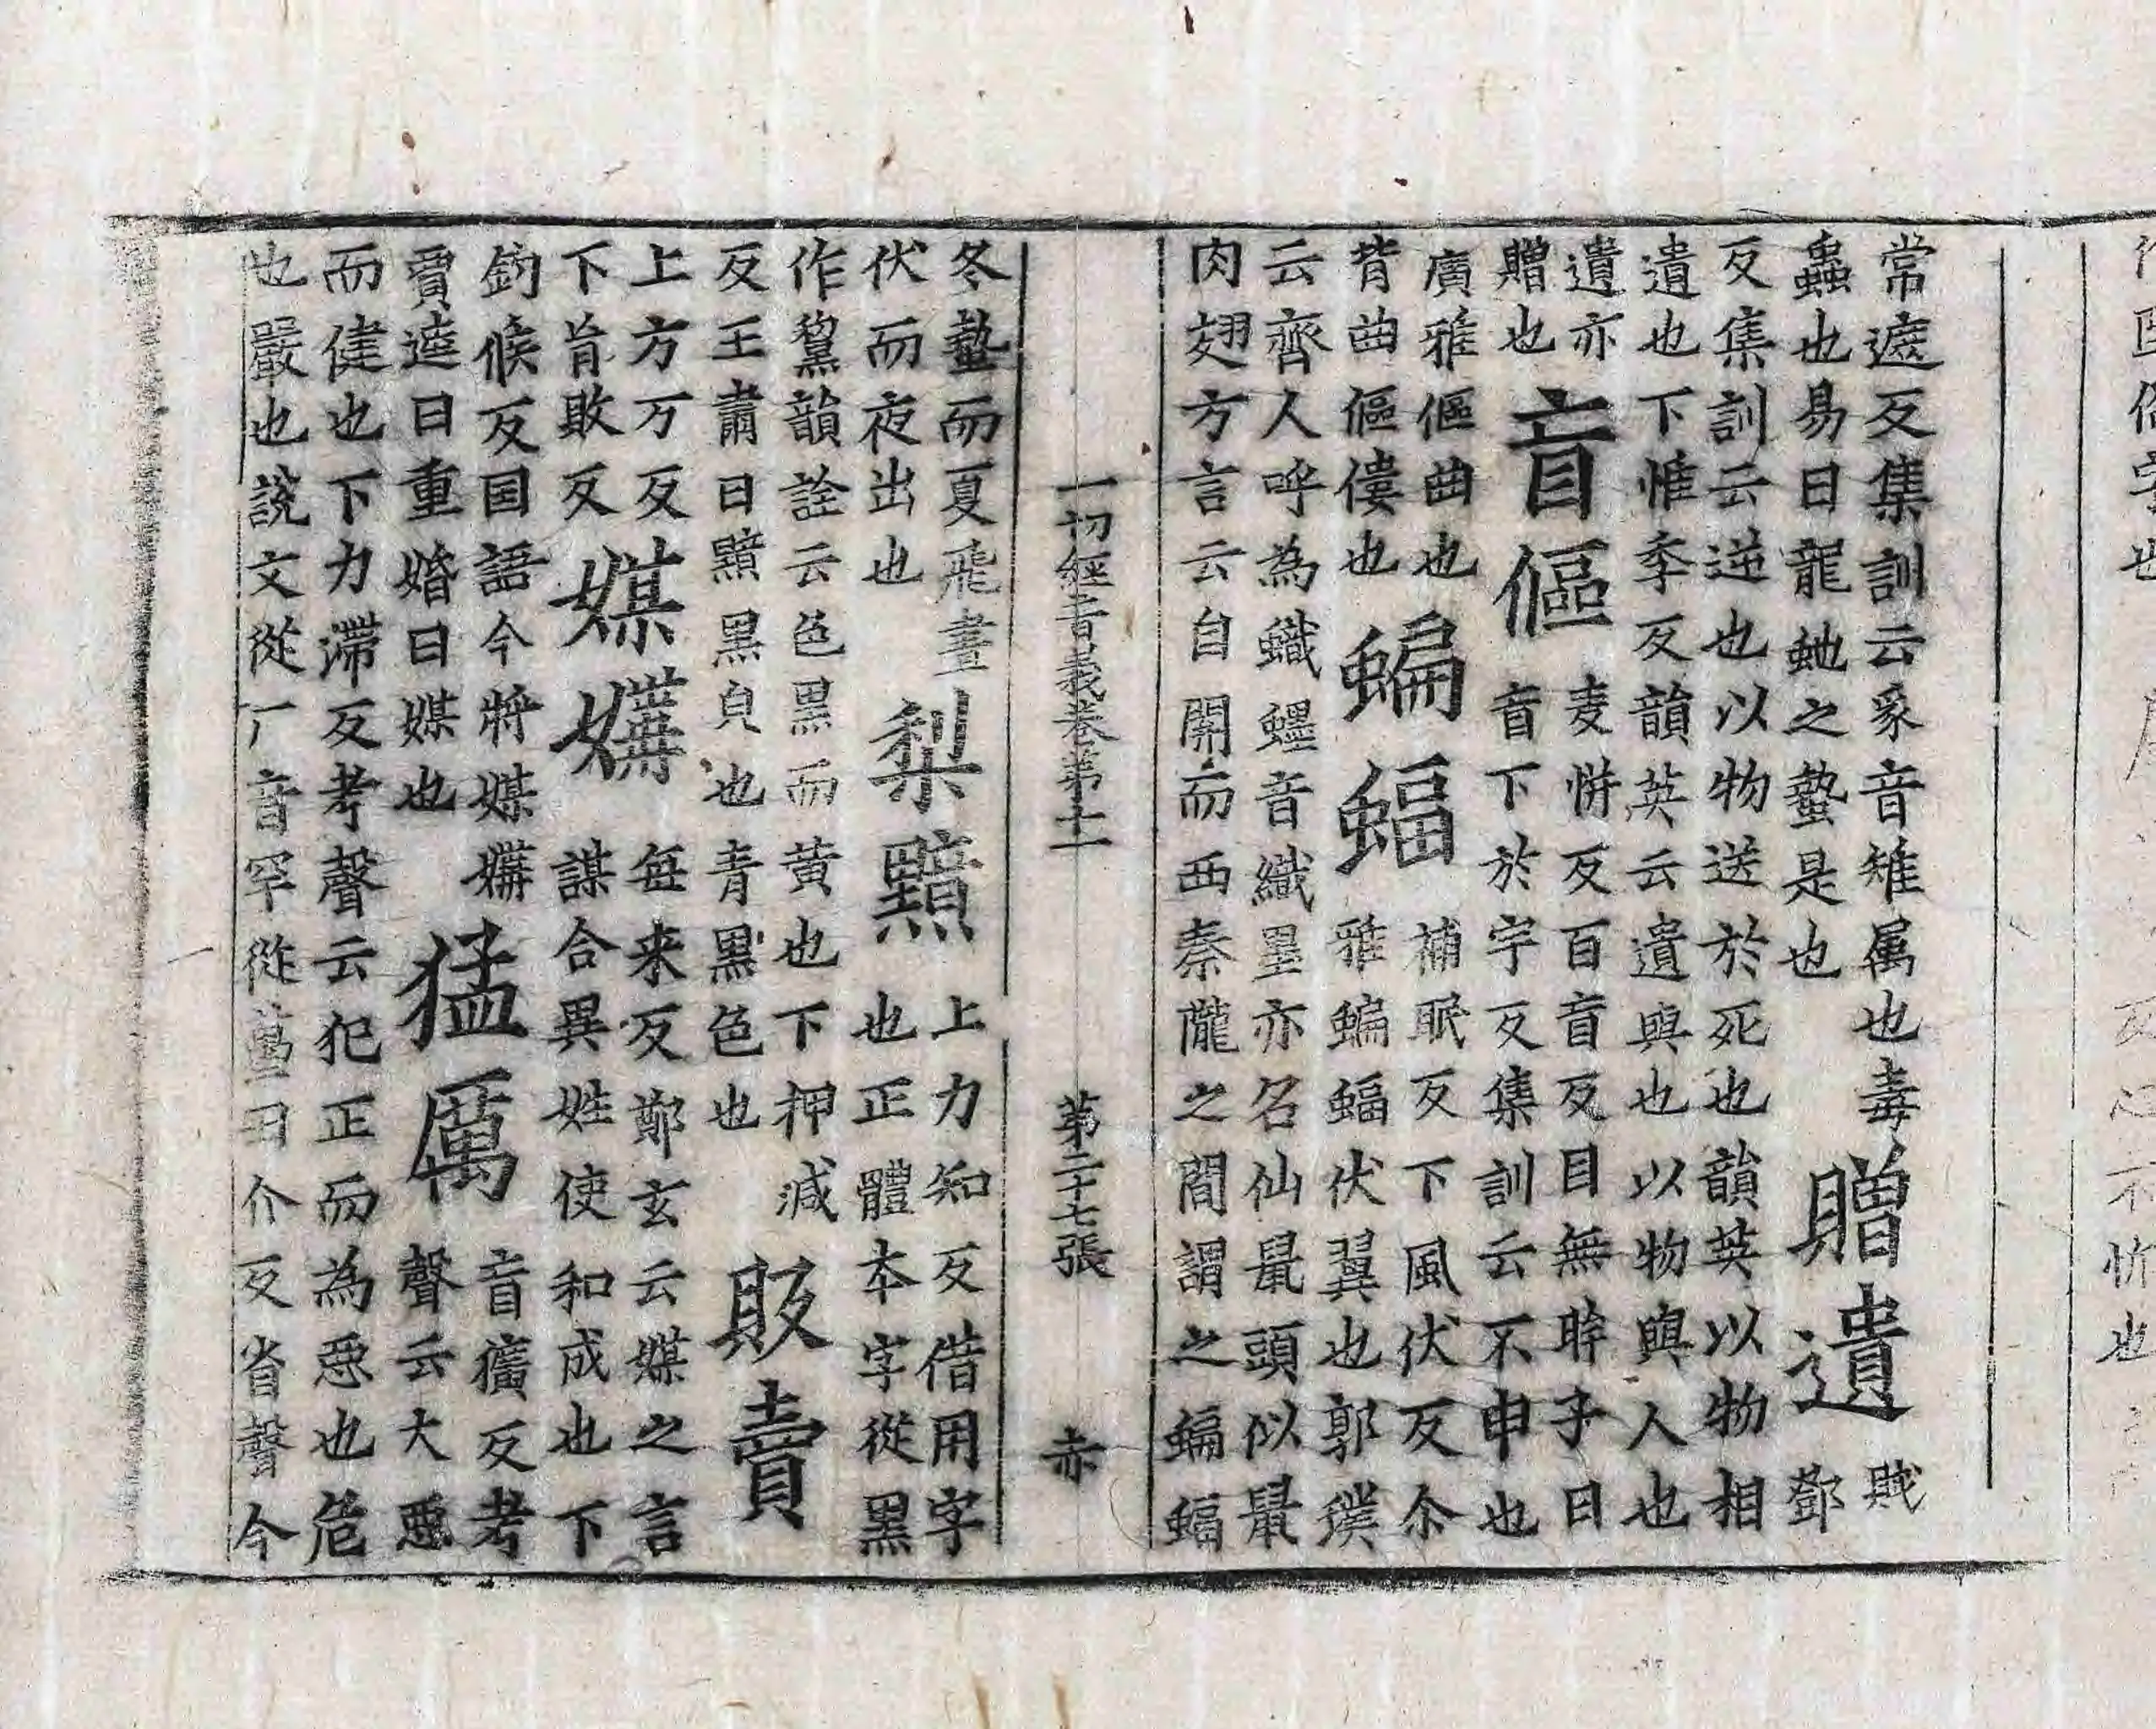 常遮反集訓云豸音雉属也毒
蟲也易曰龍虵之蟄是也
贈遺
賊
鄧
反集訓云逆也以物送於死也韻英以物相
遺也下惟季反韻英云遺與也以物與人也
遺亦
贈也
盲傴
麦恲反百盲反目無眸子曰
盲下於宇反集訓云不申也
廣雅傴曲也
背曲傴僂也
蝙蝠
補眠反下風伏反尒
雅蝙蝠伏翼也郭璞
云齊人呼為蟙䘃音織墨亦名仙鼠頭似鼠
肉翅方言云自開而西秦隴之間謂之蝙蝠
一切經音義卷第十一 第二十七張 亦
冬蟄而夏飛晝
伏而夜出也
梨黯
上力知反借用字
也正體本字從黑
作黧韻詮云色黒而黄也下押減
反王肅曰黯黒皃也青黒色也
販賣
上方万反
下肓敗反
媒媾
每来反鄭玄云媒之言
謀合異姓使和成也下
鈎候反国語今將媒媾
賈逵曰重婚曰媒也
猛厲
盲獷反考
聲云大惡
而健也下力滯反考聲云犯正而為惡也危
也嚴也說文從厂音罕從蠆丑介反省聲今